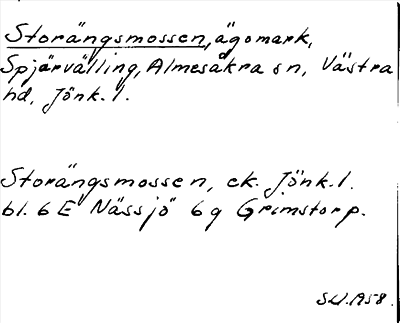 Storängsmossen, ägomark,
Spjärvälling, Almesåkra sn, Västra
hd, Jönk. l.
Storängsmossen, ek. Jönk. l.
bl. 6 E Nässjö 6 g Grimstorp.